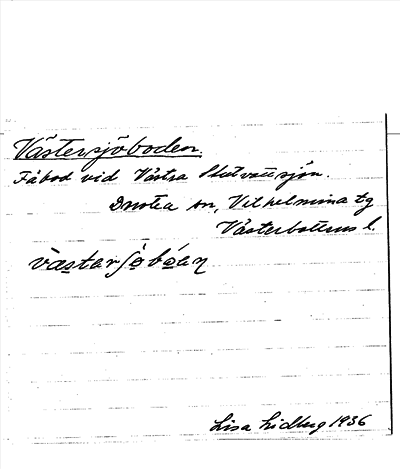 Västersjöboden.
Fäbod vid Västra Slutvattsjön.
Dorotea sn, Vilhelmina tg
Västerbottens l.
västarʃøbóan
Lisa Lidberg 1936